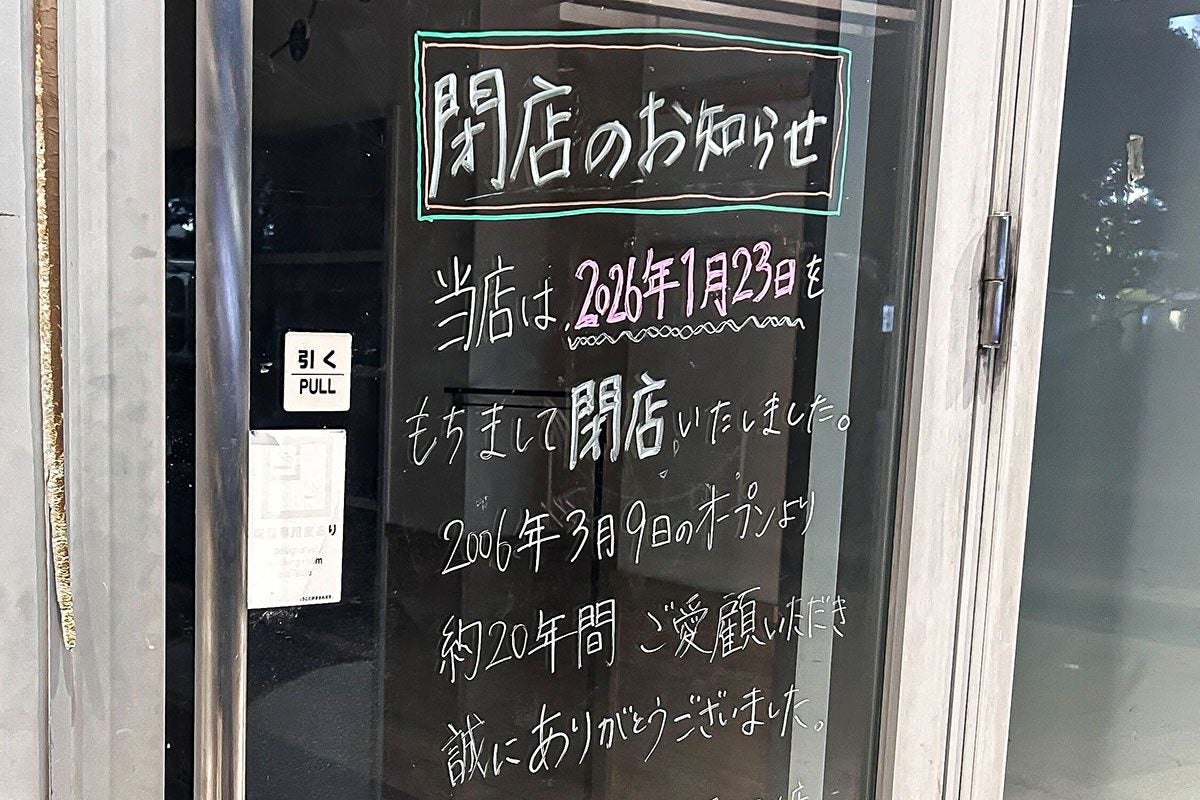 閉店のお知らせ
当店は、2026年1月23日を
もちまして閉店いたしました。
2006年3月9日のオープンより
約20年間 ご愛顧いただき
誠にありがとうございました。
引く
PULL